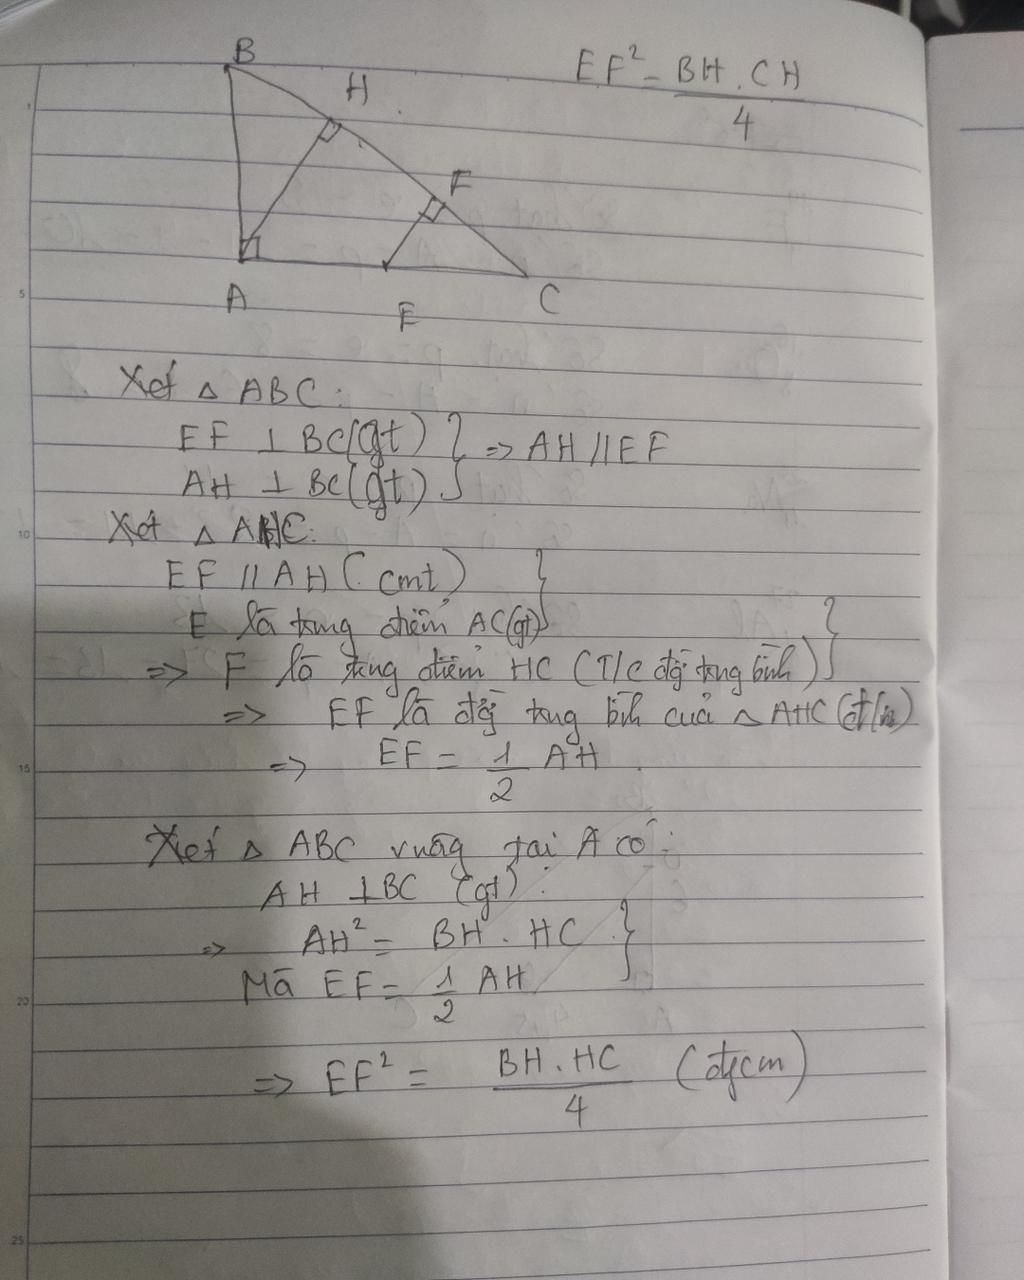 B
H
EF² = BH . CH
4
F
A
E
C
Xét △ ABC :
EF ⊥ BC (gt) } => AH // EF
AH ⊥ BC (gt)
Xét △ AHC:
EF // AH ( cmt ) }
E là trung điểm AC (gt)
=> F là trung điểm HC ( T/c đg trung bình ) }
=> EF là đg trung bình của △ AHC (đ/n)
=> EF = 1/2 AH .
Xét △ ABC vuông tại A có :
AH ⊥ BC (gt) :
=> AH² = BH . HC }
Mà EF = 1/2 AH
=> EF² = BH . HC / 4 (đpcm)
1
5
10
15
20
25